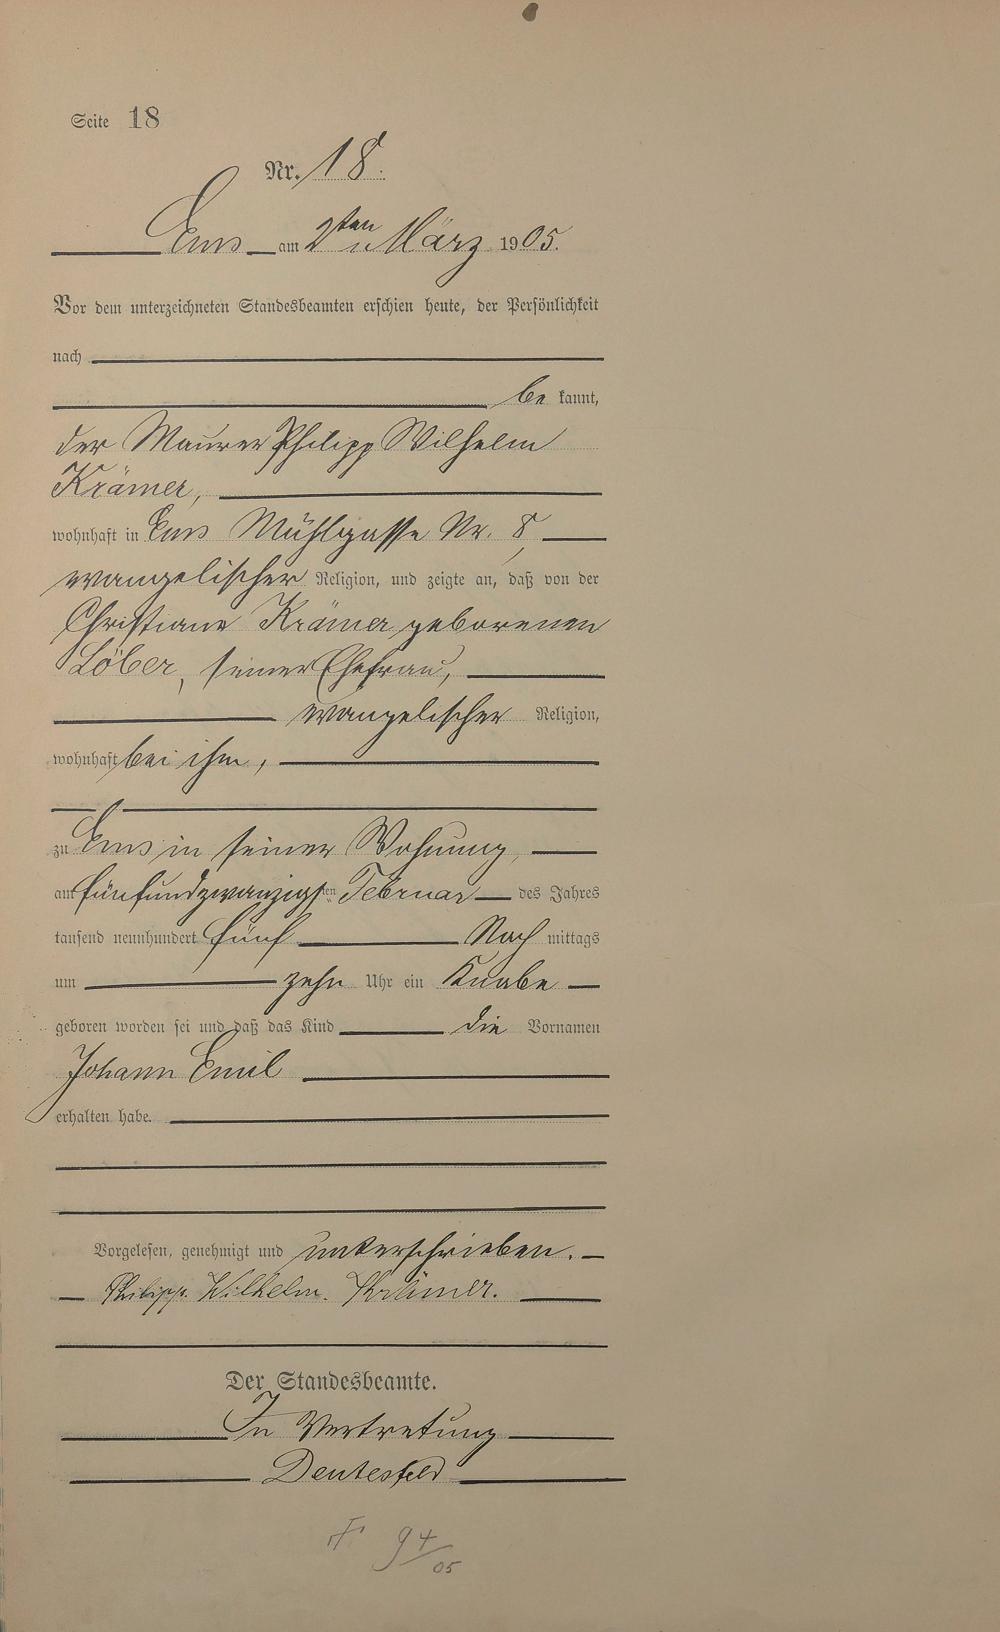 Seite 18
Nr. 18.
Ems am 2ten März 1905.
Vor dem unterzeichneten Standesbeamten erschien heute, der Persönlichkeit
nach
bekannt,
der Maurer Philipp Wilhelm
Krämer,
wohnhaft in Ems Mühlgasse Nr. 8,
evangelischer Religion, und zeigte an, daß von der
Christiane Krämer geborenen
Löber, seiner Ehefrau,
evangelischer Religion,
wohnhaft bei ihm,
zu Ems in seiner Wohnung,
am fünfundzwanzigsten Februar des Jahres
tausend neunhundert fünf Nachmittags
um zehn Uhr ein Knabe
geboren worden sei und daß das Kind die Vornamen
Johann Emil
erhalten habe.
Vorgelesen, genehmigt und unterschrieben.
Philipp. Wilhelm. Krämer.
Der Standesbeamte.
In Vertretung
94/05